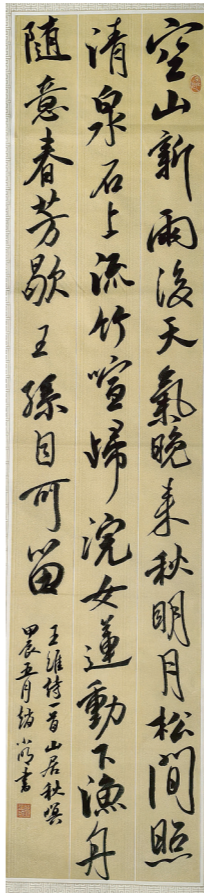 空山新雨後天氣晚来秋明月松間照
清泉石上流竹喧歸浣女蓮動下漁舟
隨意春芳歇王孫自可留
王維詩一首山居秋暝
甲辰五月書